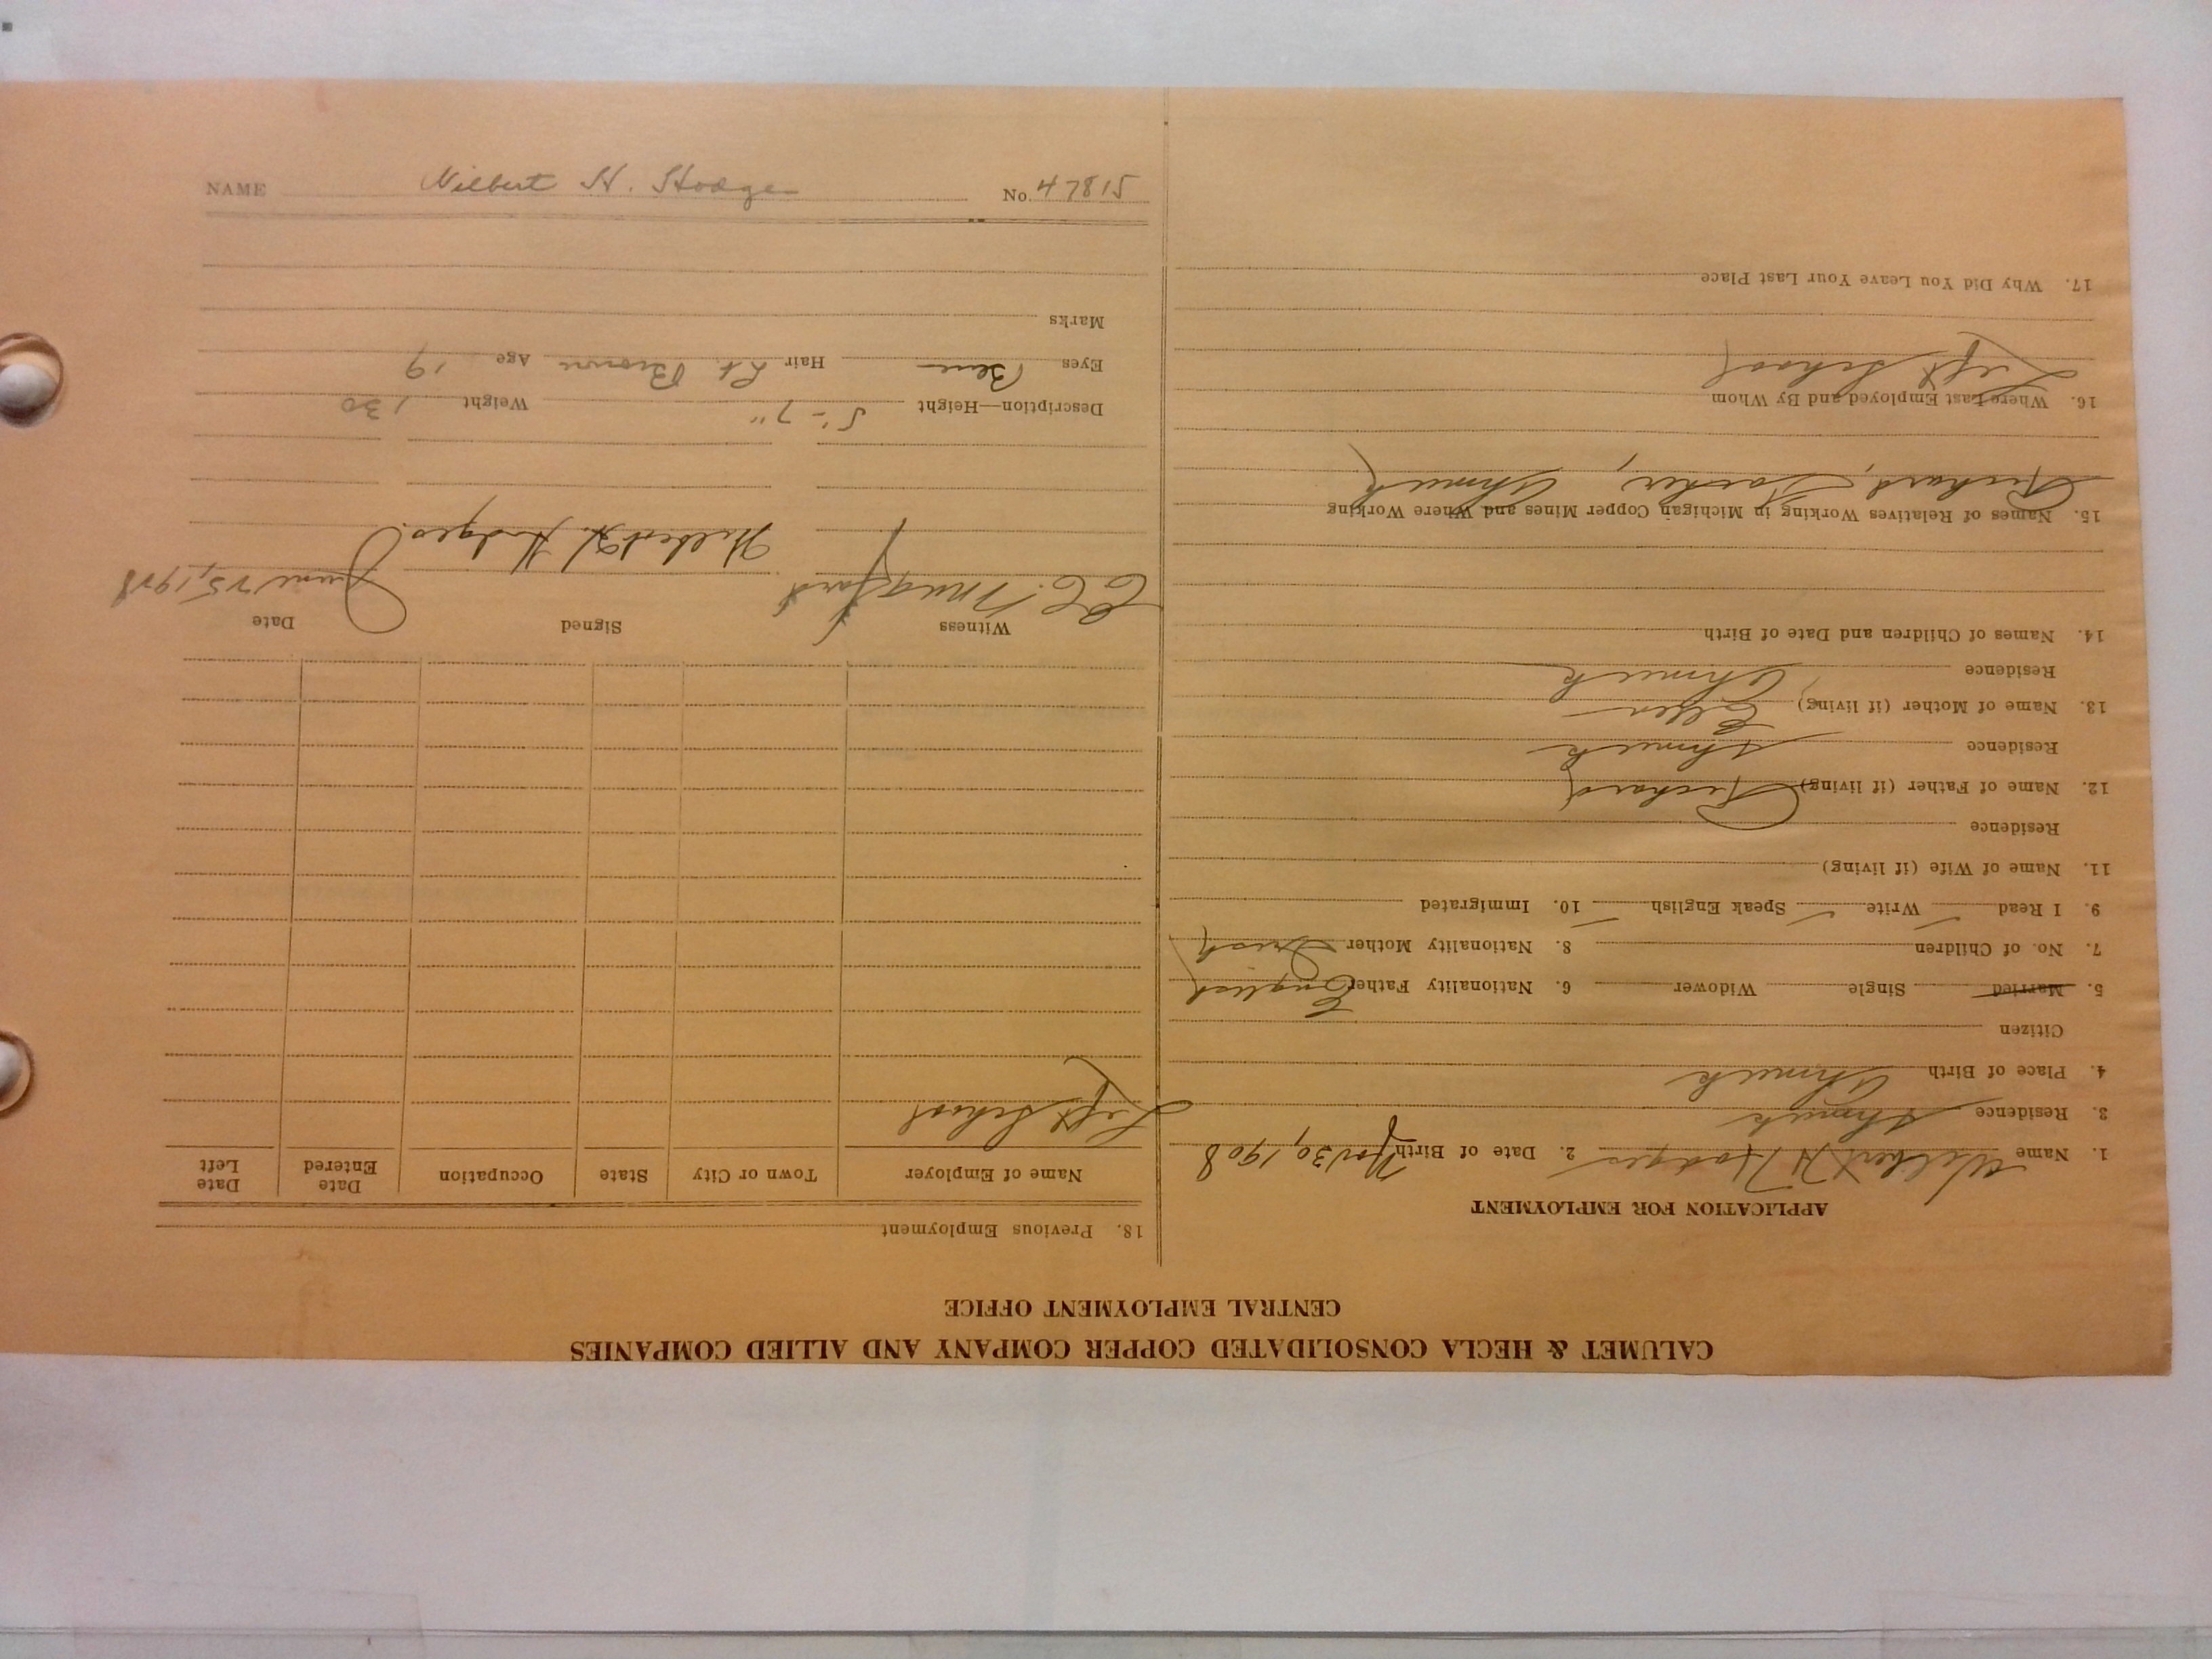 CALUMET & HECLA CONSOLIDATED COPPER COMPANY AND ALLIED COMPANIES
CENTRAL EMPLOYMENT OFFICE
APPLICATION FOR EMPLOYMENT
1. Name Wilbert H Hodges 2. Date of Birth Nov 30, 1908
3. Residence Ahmeek
4. Place of Birth Ahmeek
Citizen
5. Married Single Widower 6. Nationality Father English
7. No. of Children 8. Nationality Mother Irish
9. I Read Write Speak English 10. Immigrated
11. Name of Wife (if living)
Residence
12. Name of Father (if living) Richard
Residence Ahmeek
13. Name of Mother (if living) Ellen
Residence Ahmeek
14. Names of Children and Date of Birth
15. Names of Relatives Working in Michigan Copper Mines and Where Working
Richard, Father, Ahmeek
16. Where Last Employed and By Whom
Left School
17. Why Did You Leave Your Last Place
18. Previous Employment
Name of Employer Town or City State Occupation Date Entered Date Left
Left School
Witness Signed Date
June 25, 1928
Wilbert H. Hodges
Description—Height 5'-7" Weight 130
Eyes Blue Hair Lt. Brown Age 19
Marks
NAME Wilbert H. Hodges No. 47815